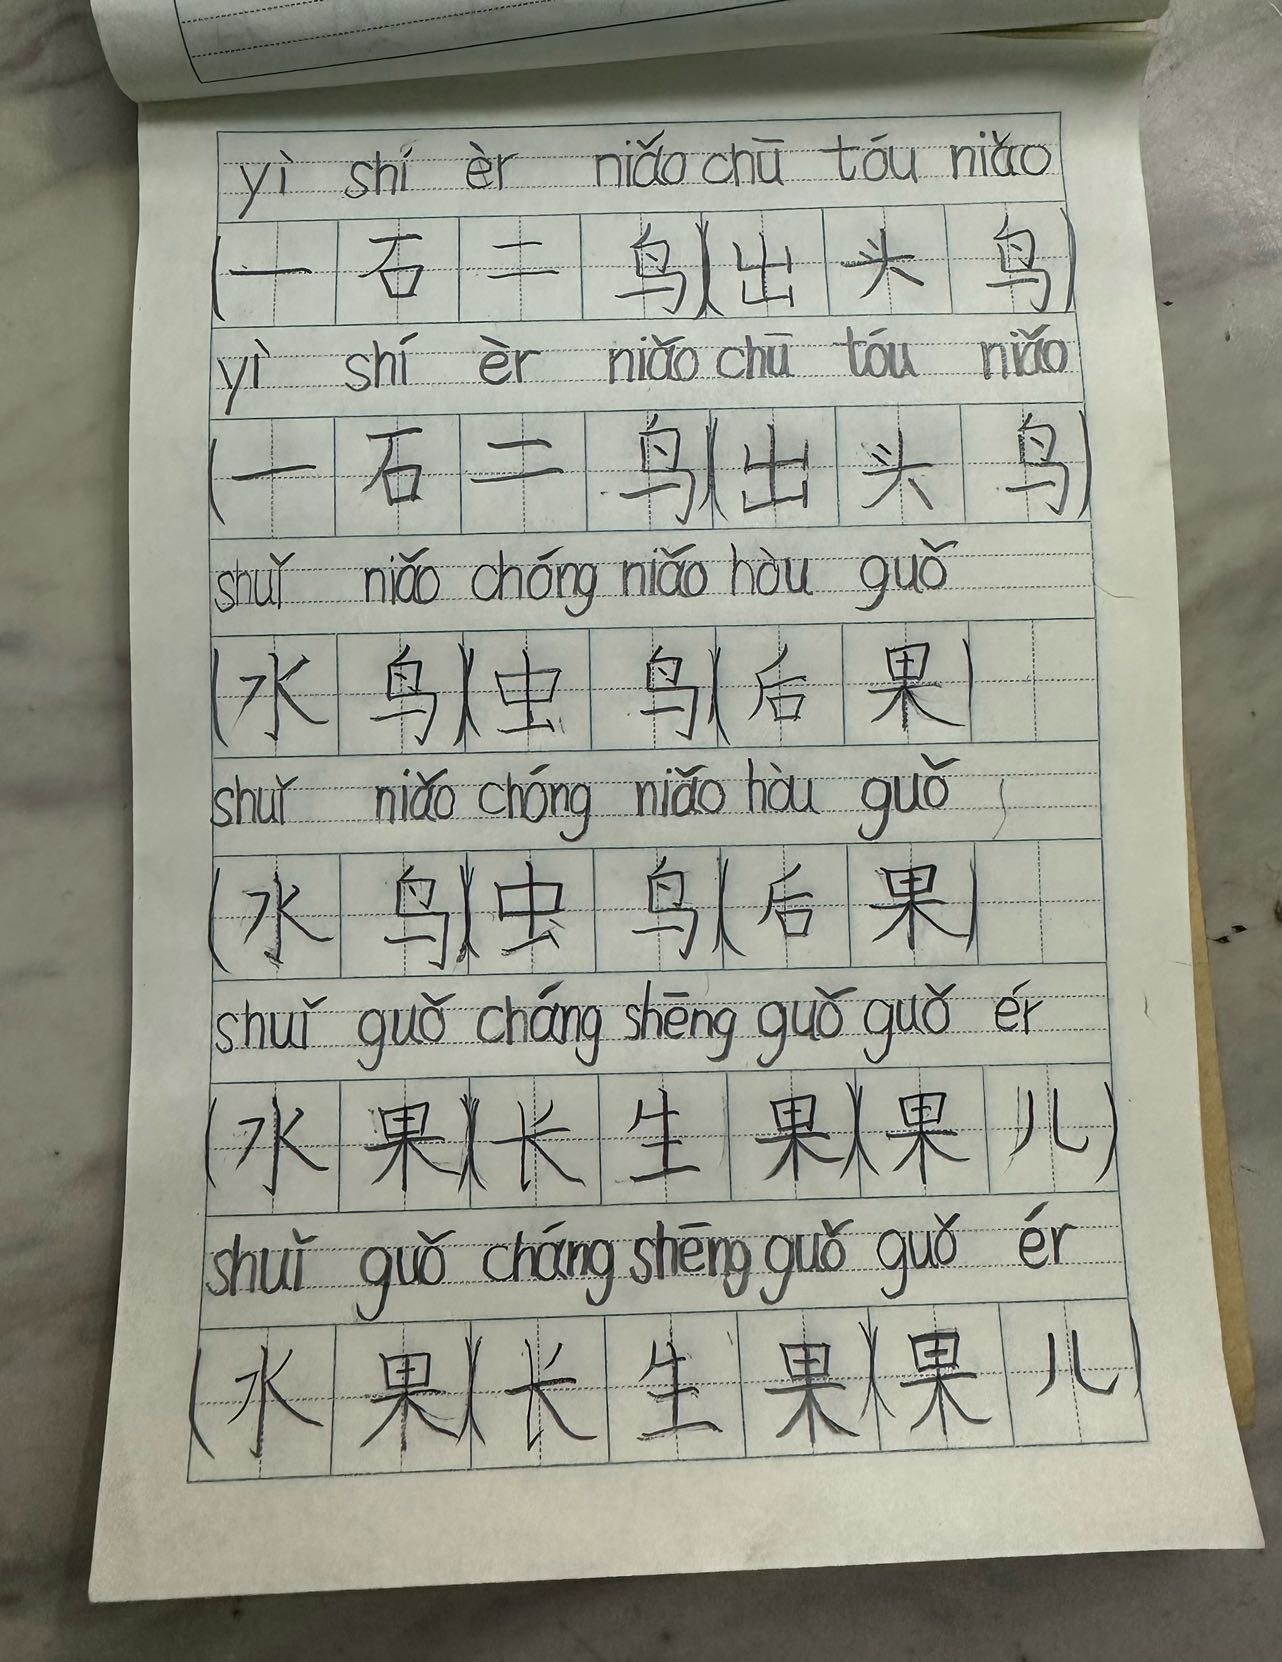 yì shí èr niǎo chū tóu niǎo
(一石二鸟)(出头鸟)
yì shí èr niǎo chū tóu niǎo
(一石二鸟)(出头鸟)
shuǐ niǎo chóng niǎo hòu guǒ
(水鸟)(虫鸟)(后果)
shuǐ niǎo chóng niǎo hòu guǒ
(水鸟)(虫鸟)(后果)
shuǐ guǒ cháng shēng guǒ guǒ ér
(水果)(长生果)(果儿)
shuǐ guǒ cháng shēng guǒ guǒ ér
(水果)(长生果)(果儿)